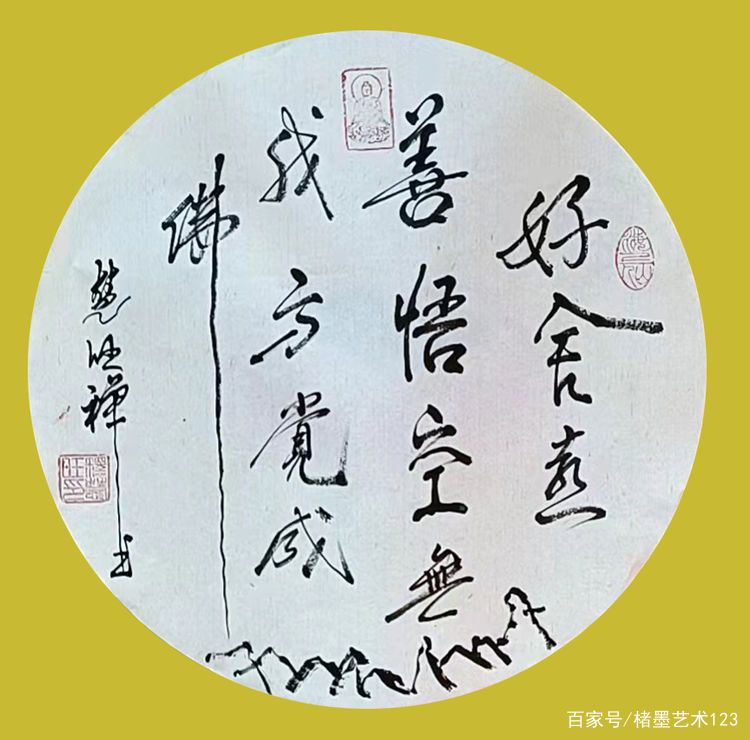 好舍慈
善悟空無
我方覺成
佛
慧旺禪书
百家号/楮墨艺术123